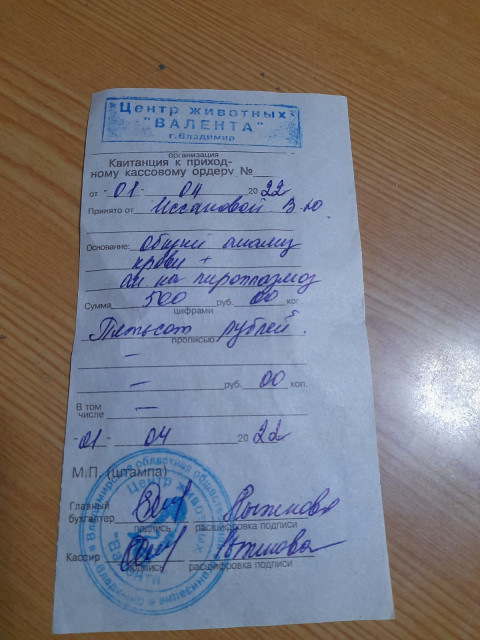 Центр животных
"ВАЛЕНТА"
г. Владимир
организация
Квитанция к приход-
ному кассовому ордеру №
от 01 04 2022
Принято от Иссановой З.Ю
Основание: Общий анализ
крови +
ан на пироплазмоз
Сумма 500 руб. 00 коп.
цифрами
Пятьсот рублей
прописью
— 
— руб. 00 коп.
В том
числе —
01 04 2022
М.П. (штампа)
Главный
бухгалтер Рыжкова
подпись расшифровка подписи
Кассир Рыжкова
подпись расшифровка подписи
Владимирская областная общественная
Центр животных
"Валента"